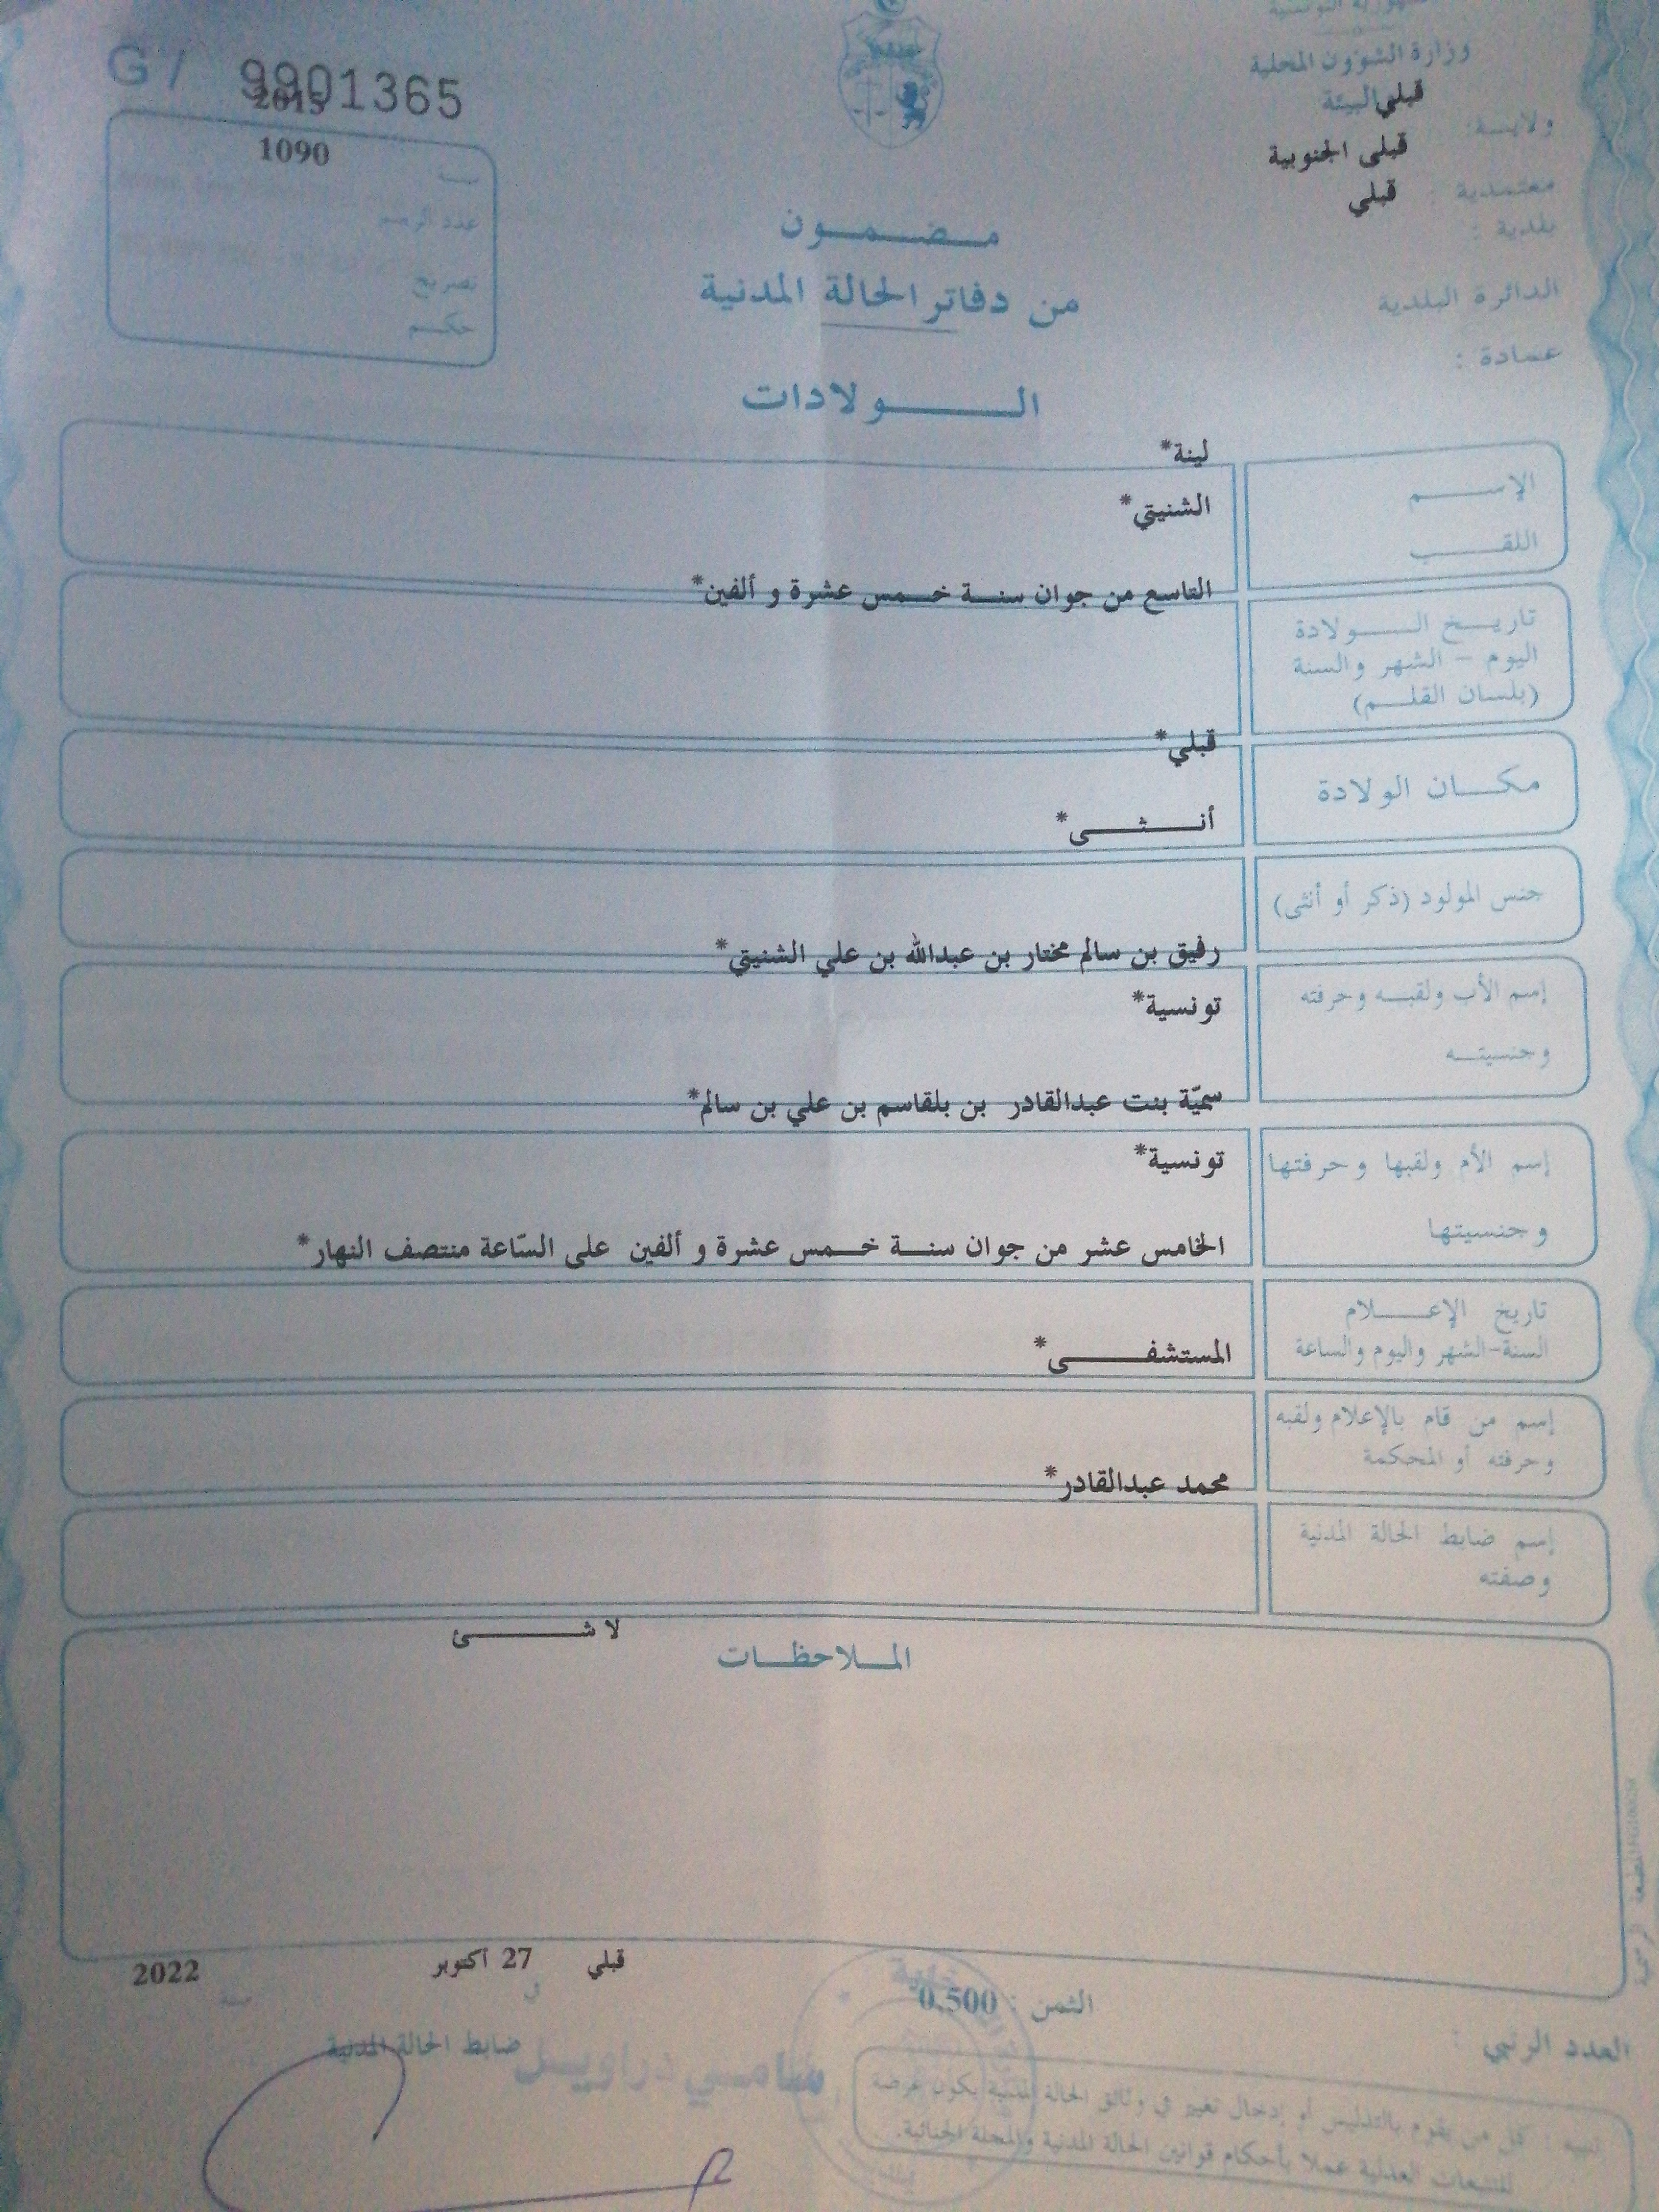 G / 9901365
2015
1090
سنة
عدد الرسم
تصريح
حكم
الجمهورية التونسية
وزارة الشؤون المحلية
والبيئة
ولاية: قبلي
معتمدية : قبلي الجنوبية
بلدية : قبلي
الدائرة البلدية
عمادة :
مضمون
من دفاتر الحالة المدنية
الولادات
الإسم
لينة*
اللقب
الشنيتي*
تاريخ الولادة
اليوم - الشهر والسنة
(بلسان القلم)
التاسع من جوان سنة خمس عشرة و ألفين*
مكان الولادة
قبلي*
جنس المولود (ذكر أو أنثى)
أنثى*
إسم الأب ولقبه وحرفته
رفيق بن سالم مختار بن عبدالله بن علي الشنيتي*
وجنسيته
تونسية*
إسم الأم ولقبها وحرفتها
سميّة بنت عبدالقادر بن بلقاسم بن علي بن سالم*
وجنسيتها
تونسية*
تاريخ الإعلام
السنة-الشهر واليوم والساعة
الخامس عشر من جوان سنة خمس عشرة و ألفين على السّاعة منتصف النهار*
إسم من قام بالإعلام ولقبه
وحرفته أو المحكمة
المستشفى*
إسم ضابط الحالة المدنية
وصفته
محمد عبدالقادر*
الملاحظات
لا شئ
قبلي 27 أكتوبر 2022
في سنة
الثمن : 0.500
ضابط الحالة المدنية
سامي دراويل
العدد الرتبي :
تنبيه : كل من يقوم بالتدليس أو إدخال تغيير في وثائق الحالة المدنية يكون عرضة
للتتبعات العدلية عملا بأحكام قوانين الحالة المدنية والمجلة الجنائية.